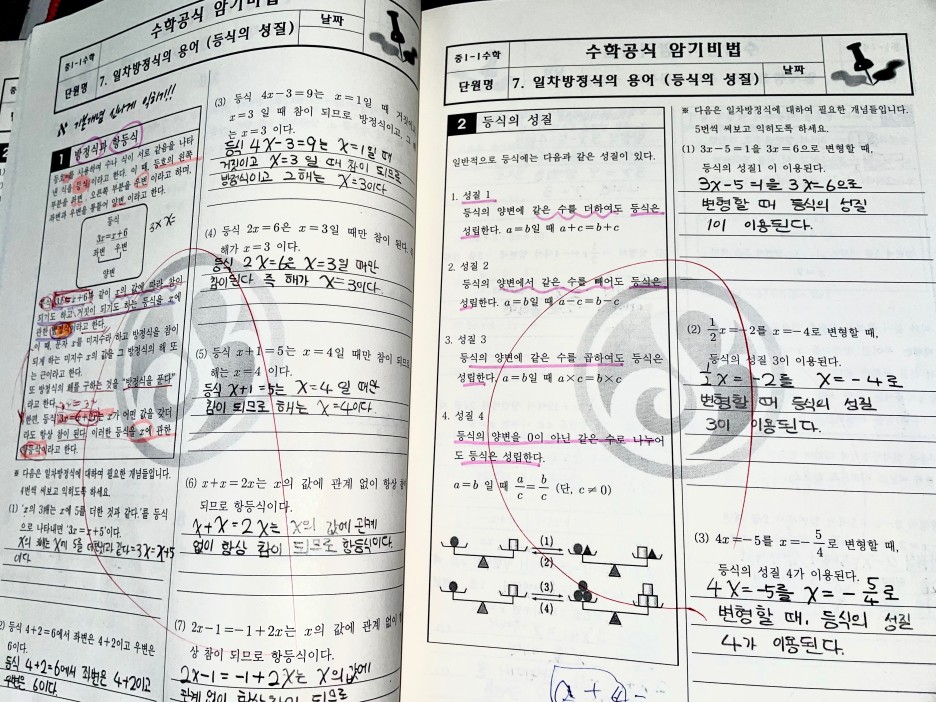 중1-1수학
수학공식 암기비법
날짜
단원명
7. 일차방정식의 용어 (등식의 성질)
기본개념
1 방정식과 항등식
등호를 사용하여 수나 식이 서로 같음을 나타
낸 식을 등식이라고 한다. 이 때, 등호의 왼쪽
부분을 좌변, 오른쪽 부분을 우변이라고 하며,
좌변과 우변을 통틀어 양변이라고 한다.
등식
3x=x+6
좌변 우변
양변
같이 x의 값에 따라 참이
되기도 하고 거짓이 되기도 하는 등식을 x에
이라고 한다.
이 때, 문자 x를 미지수라 하고 방정식을 참이
되게 하는 미지수 x의 값을 그 방정식의 해 또
는 근이라고 한다.
또 방정식의 해를 구하는 것을 "방정식을 푼다"
라고 한다.
한편, 등식 어떤 값을 갖더
라도 항상 참이 된다. 이러한 등식을 x에 관한
항등식이라고 한다.
※ 다음은 일차방정식에 대하여 필요한 개념들입니다.
4번씩 써보고 익히도록 하세요.
(1) 'x의 3배는 x에 5를 더한 것과 같다.'를 등식
으로 나타내면 '3x=x+5'이다.
3X=X+5
이다.
2) 등식 4+2=6에서 좌변은 4+2이고 우변은
6이다.
등식 4+2=6에서 좌변은 4+2이고
우변은 6이다.
(3) 등식 4x-3=9는 x=1일 때
x=3일 때 참이 되므로 방정식이고, 그
는 x=3 이다.
등식 4X-3=9는 X=1일 때
거짓이고 X=3일 때 참이 되므로
방정식이고 그 해는 X=3이다
(4) 등식 2x=6은 x=3일 때만 참이 된다.
해가 x=3 이다.
등식 2X=6은 X=3일 때만
참이된다 즉 해가 X=3이다.
(5) 등식 x+1=5는 x=4일 때만 참이 되므로
해는 x=4 이다.
등식 X+1=5는 X=4 일 때만
참이 되므로 해는 X=4이다.
(6) x+x=2x는 x의 값에 관계 없이 항상
되므로 항등식이다.
X+X=2X는 X의 값에 관계
없이 항상 참이 되므로 항등식이다.
(7) 2x-1=-1+2x는 x의 값에 관계 없이
상 참이 되므로 항등식이다.
2X-1=-1+2X는 X의 값에
관계 없이 되므로
중1-1수학
수학공식 암기비법
날짜
단원명
7. 일차방정식의 용어 (등식의 성질)
2 등식의 성질
일반적으로 등식에는 다음과 같은 성질이 있다.
1. 성질 1
등식의 양변에 같은 수를 더하여도 등식은
성립한다. a=b일 때 a+c=b+c
2. 성질 2
등식의 양변에서 같은 수를 빼어도 등식은
성립한다. a=b일 때 a-c=b-c
3. 성질 3
등식의 양변에 같은 수를 곱하여도 등식은
성립한다. a=b일 때 a×c=b×c
4. 성질 4
등식의 양변을 0이 아닌 같은 수로 나누어
도 등식은 성립한다.
a=b 일 때 a/c=b/c (단, c≠0)
(1)
(2)
(3)
(4)
※ 다음은 일차방정식에 대하여 필요한 개념들입니다.
5번씩 써보고 익히도록 하세요.
(1) 3x-5=1을 3x=6으로 변형할 때,
등식의 성질1이 이용된다.
3X-5=1을 3X=6으로
변형할 때 등식의 성질
1이 이용된다.
(2) 1/2x=-2를 x=-4로 변형할 때,
등식의 성질 3이 이용된다.
1/2X=-2를 X=-4로
변형할 때 등식의 성질
3이 이용된다.
(3) 4x=-5를 x=-5/4로 변형할 때,
등식의 성질 4가 이용된다.
4X=-5를 X=-5/4로
변형할 때, 등식의 성질
4가 이용된다.